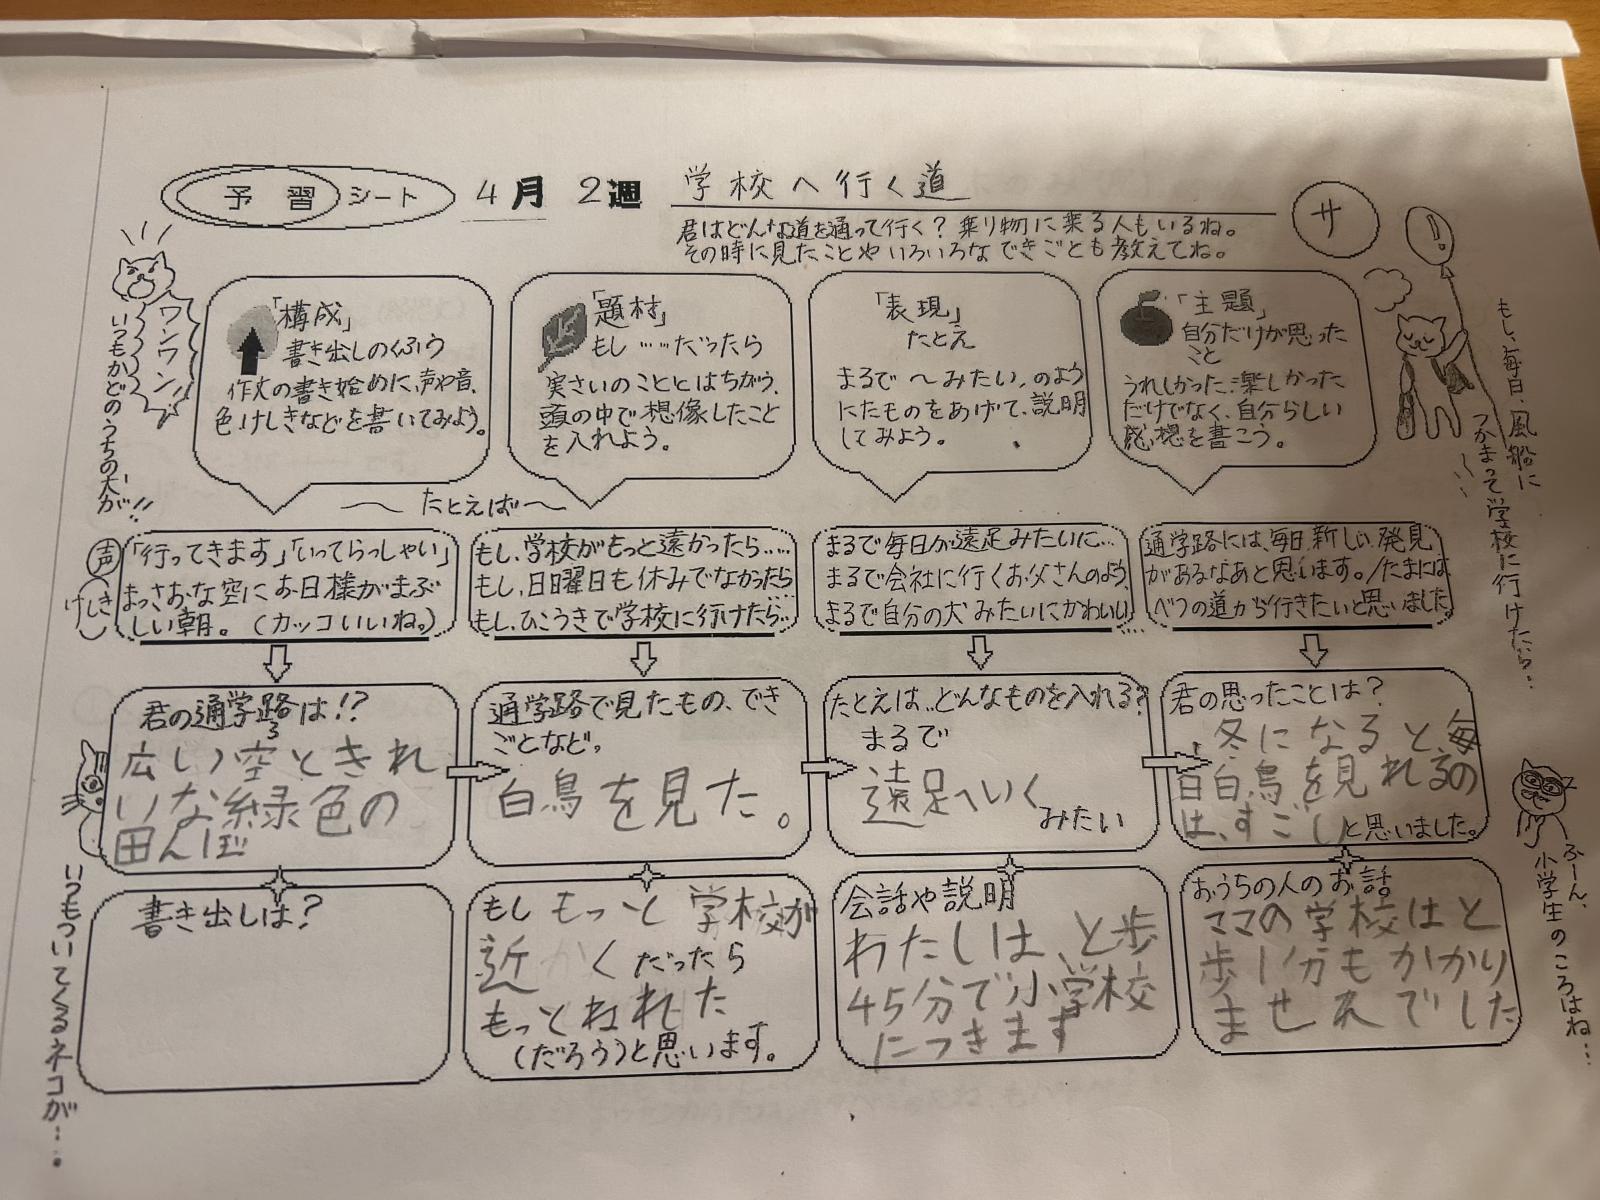 予習シート 4月 2週 学校へ行く道
サ
君はどんな道を通って行く？乗り物に乗る人もいるね。
その時に見たことやいろいろなできごとも教えてね。
ワンワン！
いつもかどのうちの犬が！！
「構成」
書き出しのくふう
作文の書き始めに、声や音、
色、けしきなどを書いてみよう。
「題材」
もし……だったら
実さいのこととはちがう、
頭の中で想像したこと
を入れよう。
「表現」
たとえ
まるで〜みたい、のよう
にたものをあげて、説明
してみよう。
「主題」
自分だけが思った
こと
うれしかった、楽しかった
だけでなく、自分らしい
感想を書こう。
！
もし、毎日、風船に
つかまって学校に行けたら…
〜たとえば〜
声
けしき
「行ってきます」「いってらっしゃい」
まっさおな空にお日様がまぶ
しい朝。（カッコいいね。）
もし、学校がもっと遠かったら……
もし、日曜日も休みでなかったら…
もし、ひこうきで学校に行けたら…
まるで毎日が遠足みたいに…
まるで会社に行くお父さんのよう、
まるで自分の犬みたいにかわいい…
通学路には、毎日、新しい発見
があるなあと思います。／たまには
べつの道から行きたいと思いました。
君の通学路は！？
広い空ときれ
いな緑色の
田んぼ
通学路で見たもの、でき
ごとなど。
白鳥を見た。
たとえは…どんなものを入れる？
まるで
遠足へいく
みたい
君の思ったことは？
冬になると毎
日白鳥を見れるの
は、すごい
と思いました。
いつもついてくるネコが…
書き出しは？
もし もっと学校が
近くだったら
もっとねれた
（だろう）と思います。
会話や説明
わたしは、と歩
45分で小学校
につきます
おうちの人のお話
ママの学校はと
歩1分もかかり
ませんでした
ふーん、
小学生のころはね…